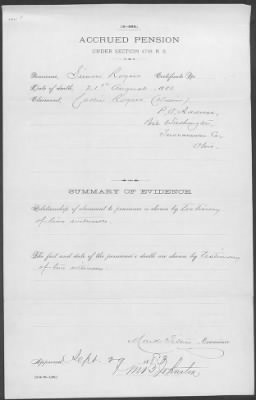 ACCRUED PENSION
UNDER SECTION 4718 R. S.
Pensioner, Simon Rogers Certificate No.
Date of death, 21st August
Claimant, Rogers
P. O. Address,
Tuscarawas Co.
Ohio
SUMMARY OF EVIDENCE.
Relationship of claimant to pensioner is shown by Testimony
of two witnesses.
The fact and date of the pensioner's death are shown by Testimony
of two witnesses.
Examiner
Approved Sept. 29
Johnston